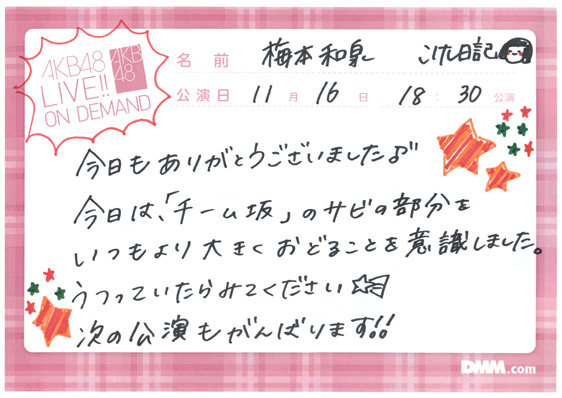 AKB48
LIVE!!
ON DEMAND
AKB
48
名前 梅本和泉 こけ日記
公演日 11月 16日 18:30公演
今日もありがとうございました♪
今日は、「チーム坂」のサビの部分を
いつもより大きくおどることを意識しました。
うつっていたらみてください☆
次の公演もがんばります!!
DMM.com